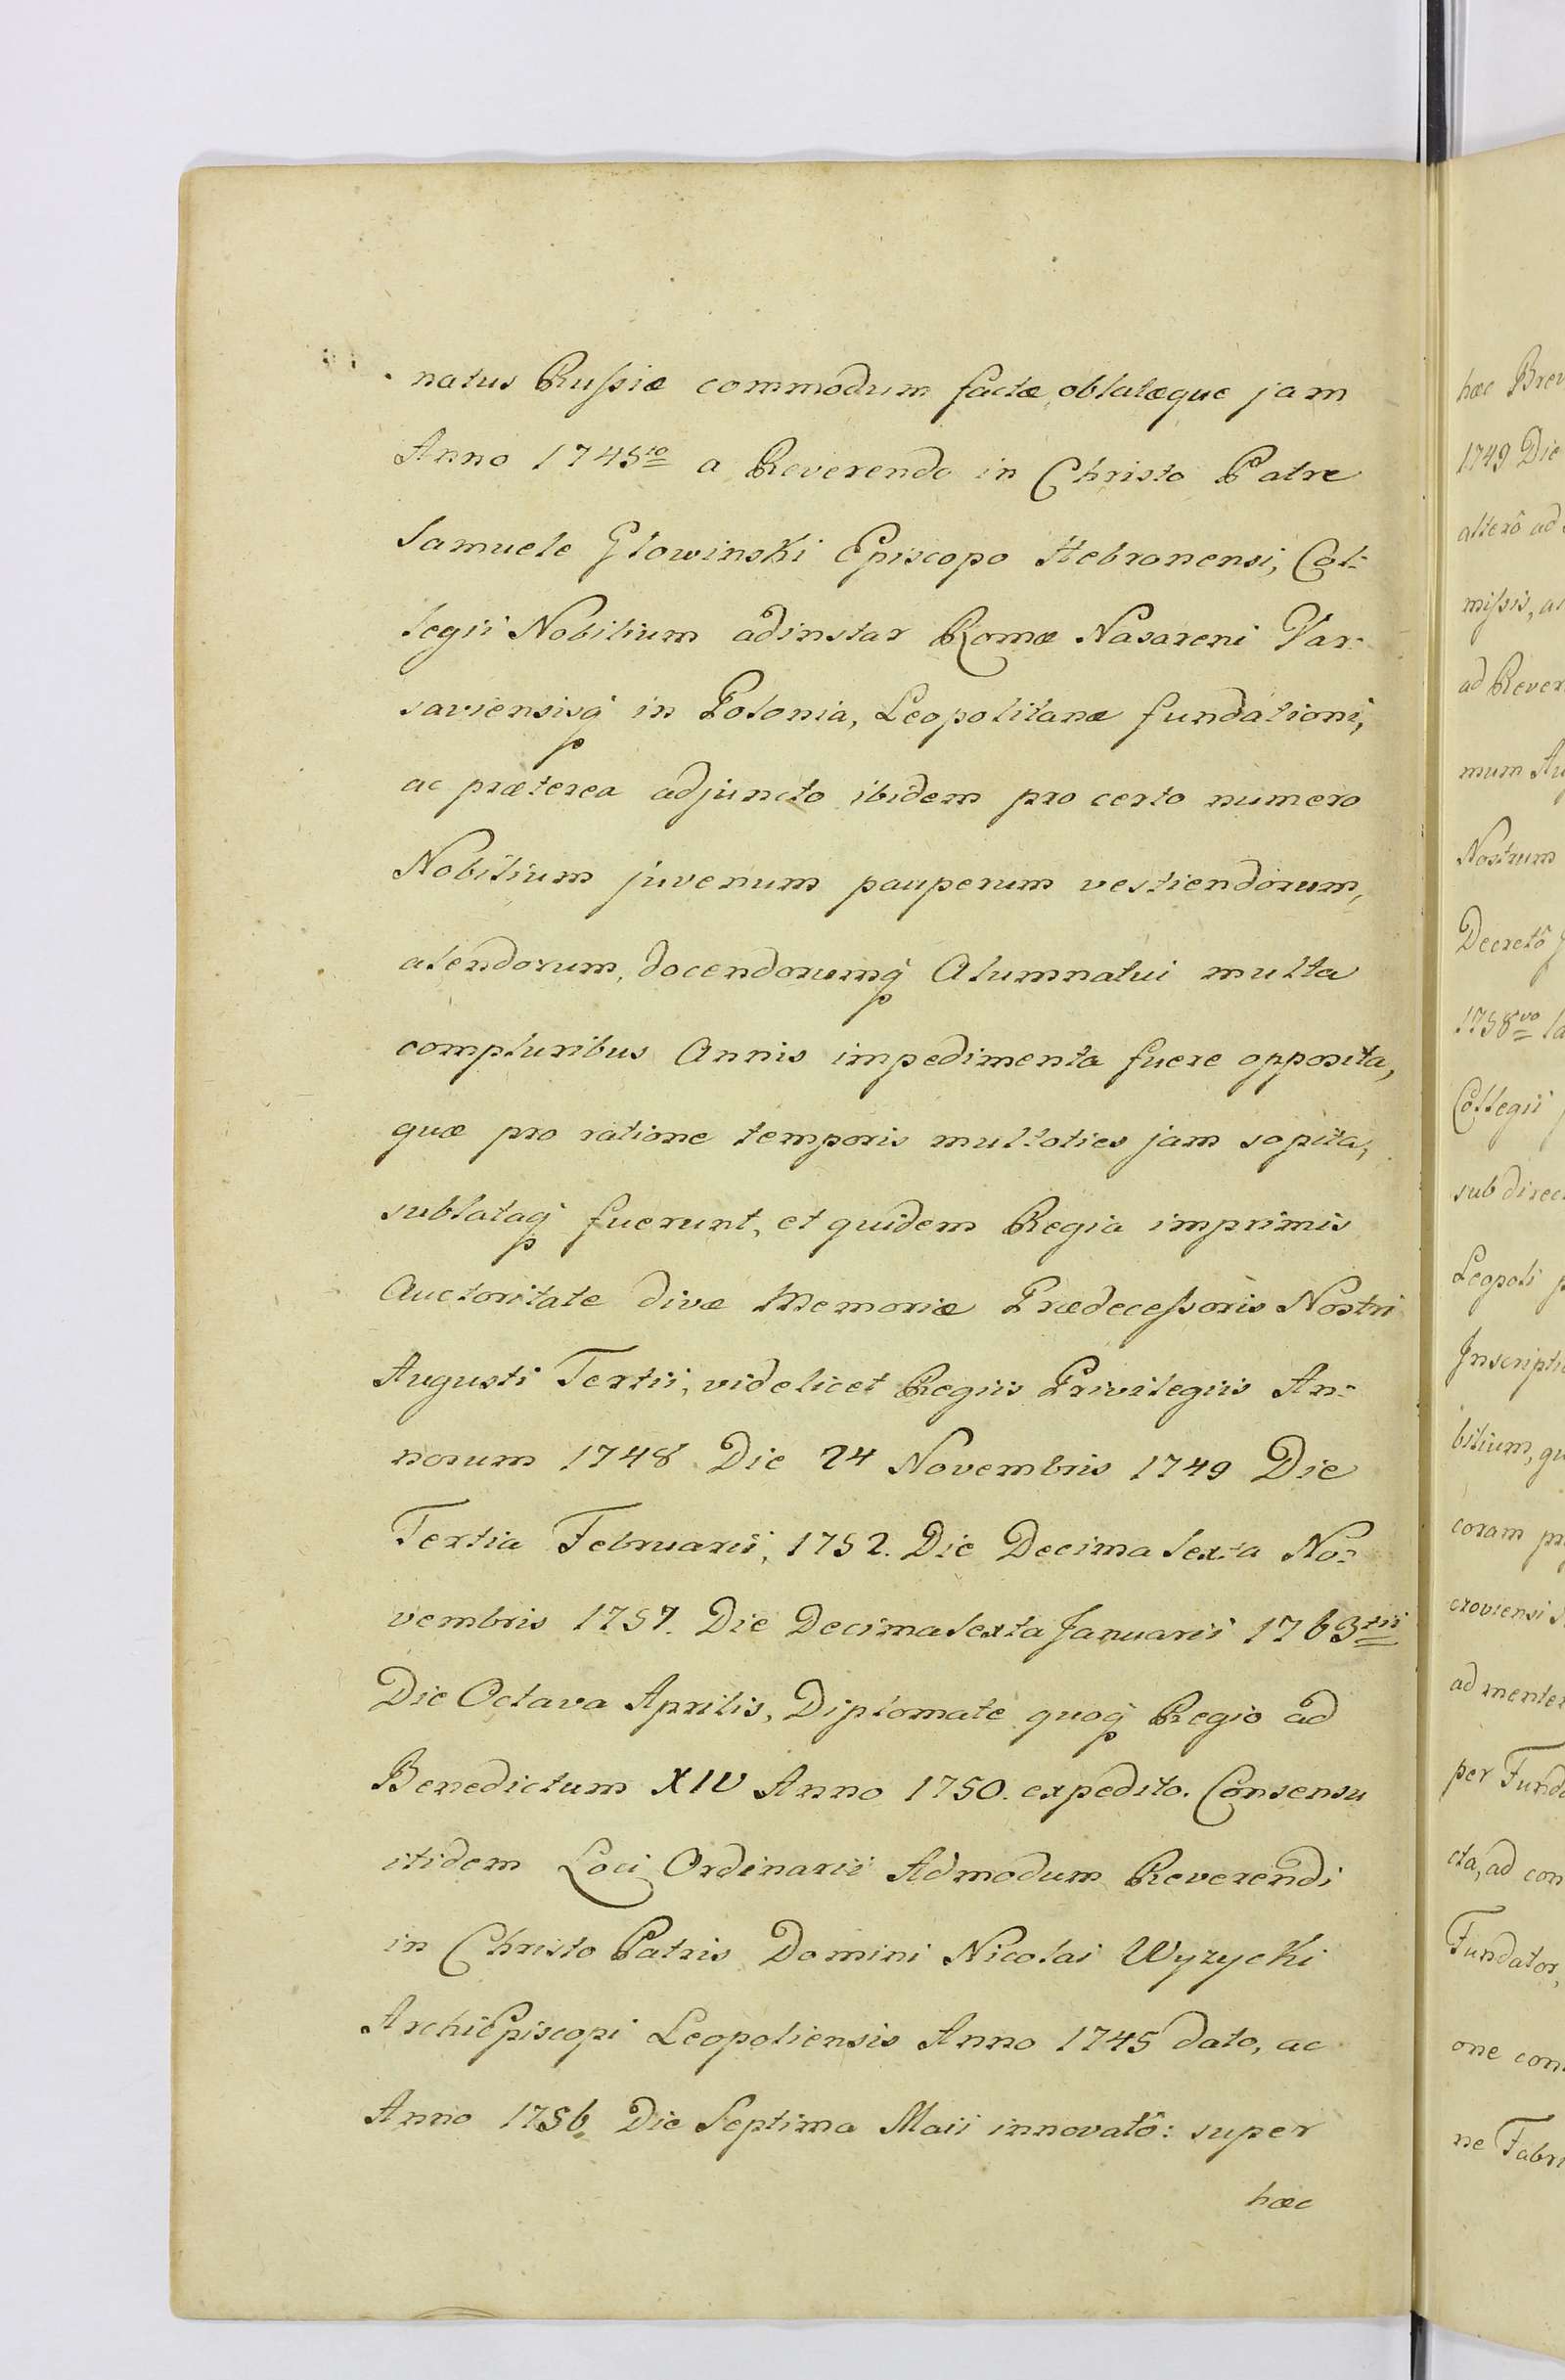 natus Rußiæ commodum factæ, oblatæque jam
Anno 1745to a Reverendo in Christo Patre
Samuele Glowinski Episcopo Hebronensi, Col:
legii Nobilium adinstar Romæ Nasareni Var:
saviensisq in Polonia, Leopolitanæ fundationi,
ac præterea adjuncto ibidem pro certo numero
Nobilium juvenum pauperum vestiendorum,
alendorum, docendorumq Alumnatui multa
compluribus Annis impedimenta fuere opposita,
quæ pro ratione temporis multoties jam sopita,
sublataq fuerunt, et quidem Regia imprimis
Auctoritate divæ Memoriæ Prædeceßoris Nostri
Augusti Tertii, videlicet Regiis Privilegiis An:
norum 1748 Die 24 Novembris 1749 Die
Tertia Februarii, 1752. Die Decima Sexta No:
vembris 1757. Die Decima Sexta Januarii 1763tii
Die Octava Aprilis, Diplomate quoq Regio ad
Benedictum XIV Anno 1750. expedito. Consensu
itidem Loci Ordinarii Admodum Reverendi
in Christo Patris Domini Nicolai Wyzycki
ArchiEpiscopi Leopoliensis Anno 1745 dato, ac
Anno 1756 Die Septima Maii innovatô: super
hæc
hæc Brev
1749 Die
alterô ad
mißis, a
ad Rever
mum Au
Nostrum
Decretô
1758vo la
Collegii
sub direc
Leopoli p
Inscripti
bilium, qu
coram pr
croviensi
ad mente
per Funda
cta, ad con
Fundator,
one con
ne Fabri